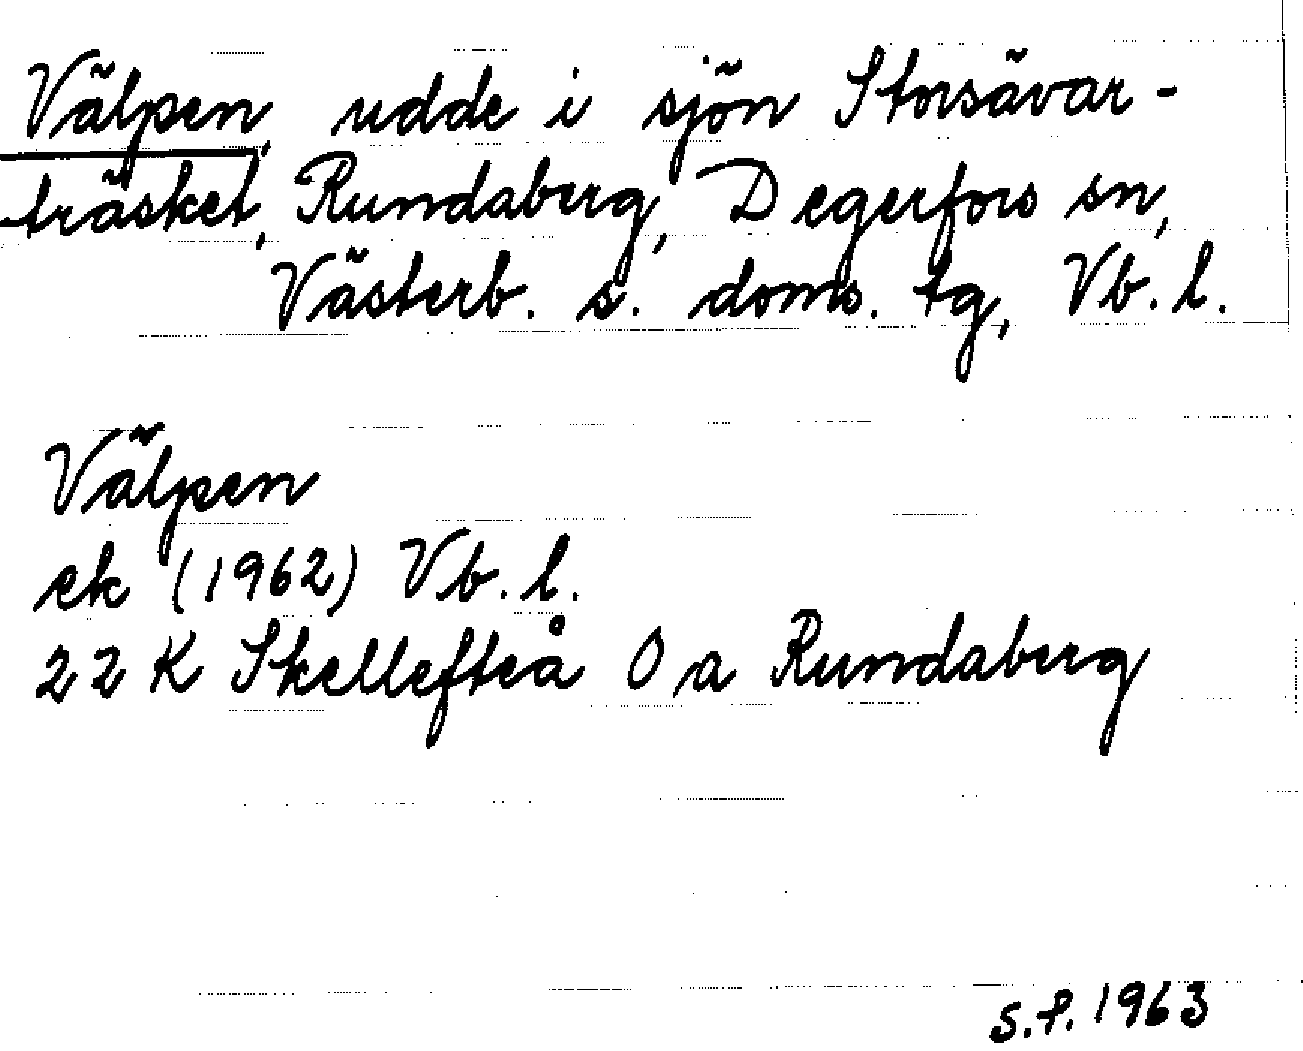 Välpen, udde i sjön Storsävar-
träsket, Rundaberg, Degerfors sn,
Västerb. s. doms. tg, Vb. l.
Välpen
ek (1962) Vb. l.
22 K Skellefteå 0 a Rundaberg
S.F. 1963